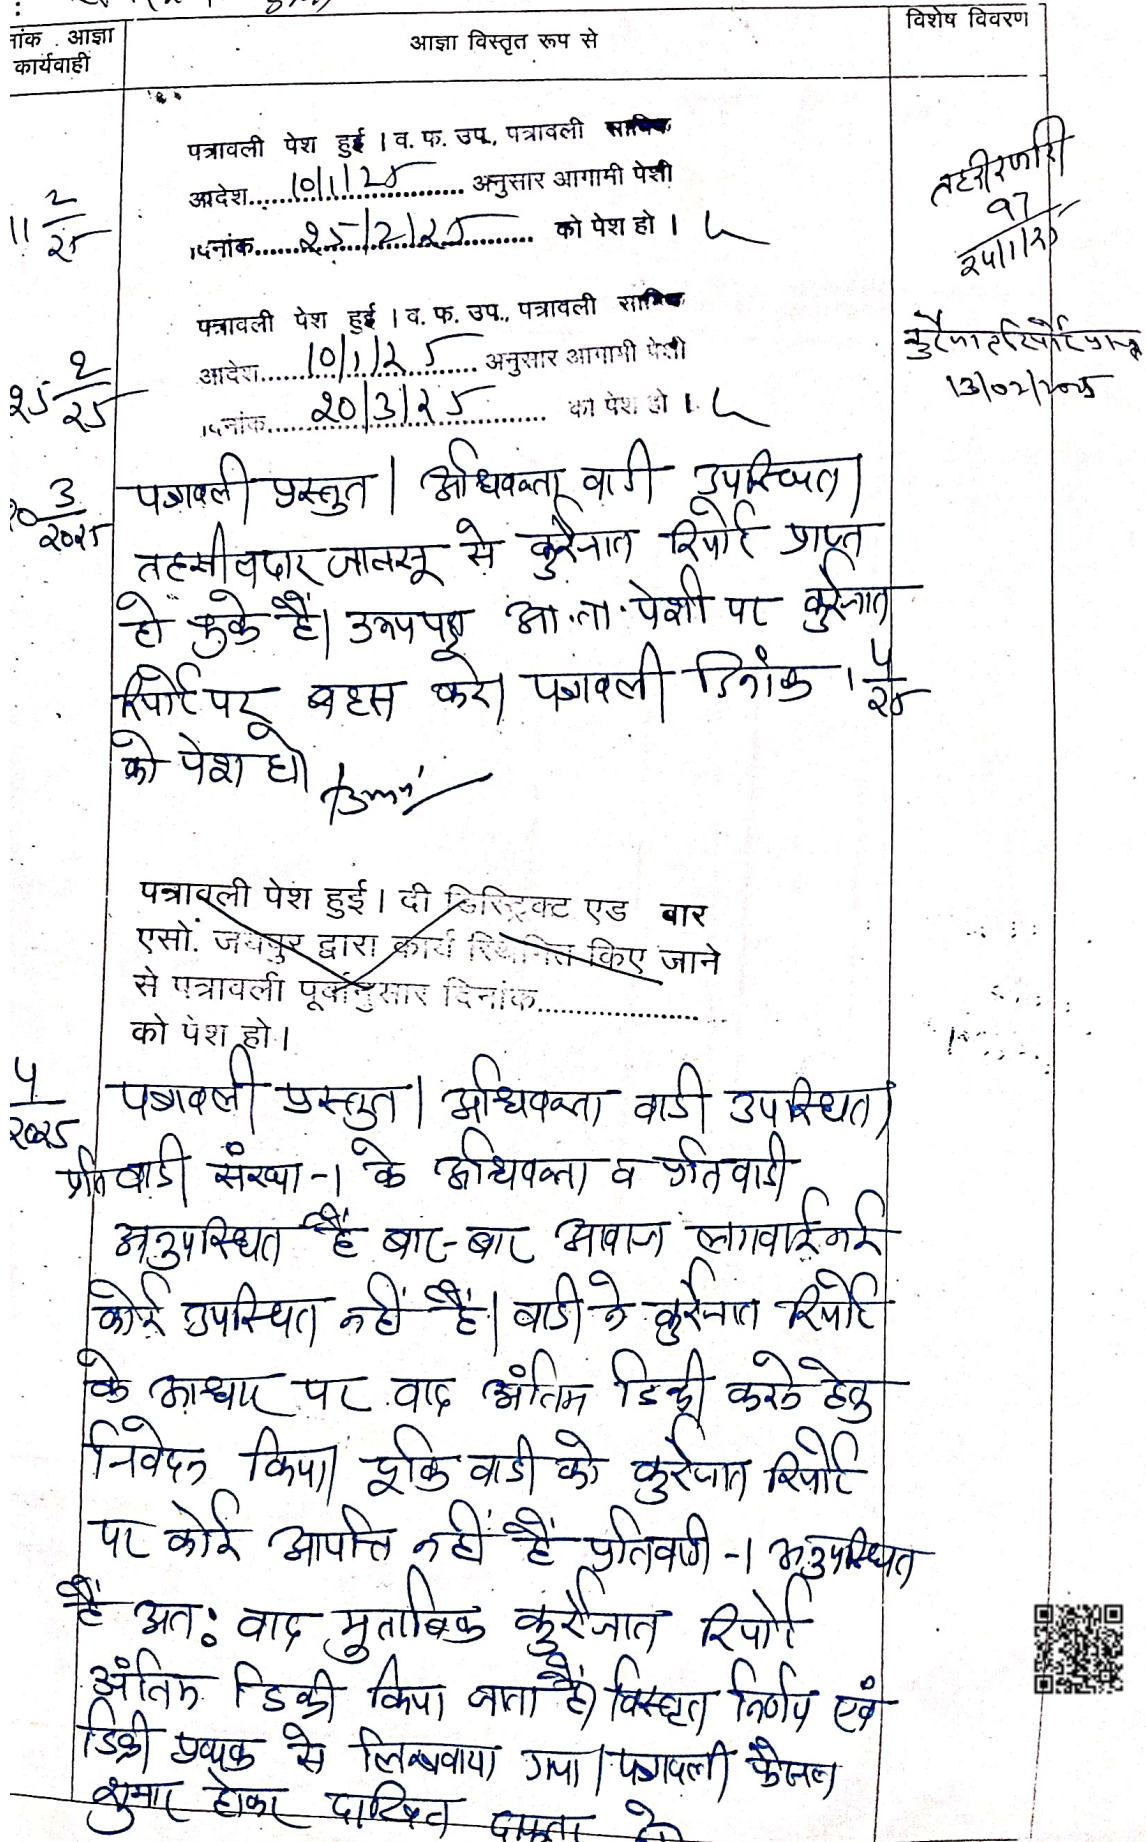 नांक आज्ञा
कार्यवाही
आज्ञा विस्तृत रूप से
विशेष विवरण
पत्रावली पेश हुई । व. फ. उप., पत्रावली साबिक
आदेश....10/1/25.... अनुसार आगामी पेशी
दिनांक....25/2/25.... को पेश हो ।
11 2/25
तहरीर जारी
97
24/1/25
पत्रावली पेश हुई । व. फ. उप., पत्रावली साबिक
आदेश....10/1/25.... अनुसार आगामी पेशी
दिनांक....20/3/25.... को पेश हो ।
25 2/25
कुर्रेजात रिपोर्ट प्राप्त
13/02/2025
20 3/2025
पत्रावली प्रस्तुत। अधिवक्ता वादी उपस्थित।
तहसीलदार जालसू से कुर्रेजात रिपोर्ट प्राप्त
हो चुके हैं। उभयपक्ष आ.ता. पेशी पर कुर्रेजात
रिपोर्ट पर बहस करे। पत्रावली दिनांक 1 4/25
को पेश हो।
पत्रावली पेश हुई। दी डिस्ट्रिक्ट एड बार
एसो. जयपुर द्वारा कार्य स्थगित किए जाने
से पत्रावली पूर्वानुसार दिनांक....................
को पेश हो।
4/2025
पत्रावली प्रस्तुत। अधिवक्ता वादी उपस्थित।
प्रतिवादी संख्या-1 के अधिवक्ता व प्रतिवादी
अनुपस्थित हैं बार-बार आवाज लगवाई गई
कोई उपस्थित नहीं हैं। वादी ने कुर्रेजात रिपोर्ट
के आधार पर वाद अंतिम डिक्री करने हेतु
निवेदन किया। चूंकि वादी को कुर्रेजात रिपोर्ट
पर कोई आपत्ति नहीं हैं प्रतिवादी-1 अनुपस्थित
हैं अत: वाद मुताबिक कुर्रेजात रिपोर्ट
अंतिम डिक्री किया जाता हैं। विस्तृत निर्णय एवं
डिक्री पृथक से लिखवाया गया। पत्रावली फैसल
शुमार होकर दाखिल दफ्तर हो